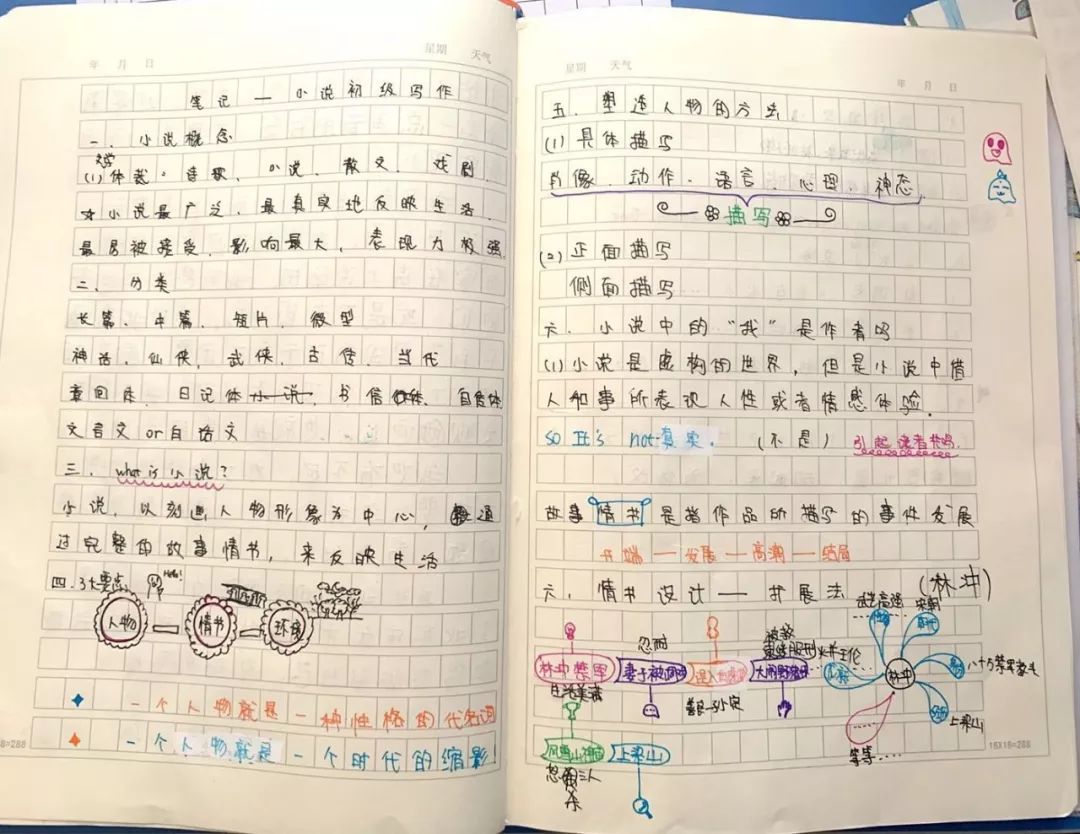 年 月 日
星期 天气
笔记 — 小说初级写作
一、小说概念
文学
(1)体裁：诗歌、小说、散文、戏剧.
☆小说最广泛、最真实地反映生活、
最易被接受、影响最大、表现力极强.
二、分类
长篇、中篇、短片、微型
神话、仙侠、武侠、古传、当代
章回体、日记体小说、书信体、自传体
文言文or白话文
三、what is 小说?
小说，以刻画人物形象为中心，通
过完整的故事情书，来反映生活
四.3大要点
Hello!
人物 — 情书 — 环境
一个人物就是一种性格的代名词
一个人物就是一个时代的缩影!
8=288
星期 天气
年 月 日
五、塑造人物的方法
(1)具体描写
肖像、动作、语言、心理、神态
描写
(2)正面描写
侧面描写
六、小说中的“我”是作者吗
(1)小说是虚构的世界，但是小说中借
人和事所表现人性或者情感体验.
so It's not真实. (不是) 引起读者共鸣.
故事情书是指作品所描写的事件发展
开端—发展—高潮—结局
六、情书设计——扩展法 (林冲)
武艺高强 宋朝
忍耐
林冲禁军 妻子被调戏 误入白虎堂 大闹野猪林
生活美满
林冲
八十万禁军教头
上梁山
等等……
风雪山神庙 上梁山
忍无
三人
杀
16X18=288